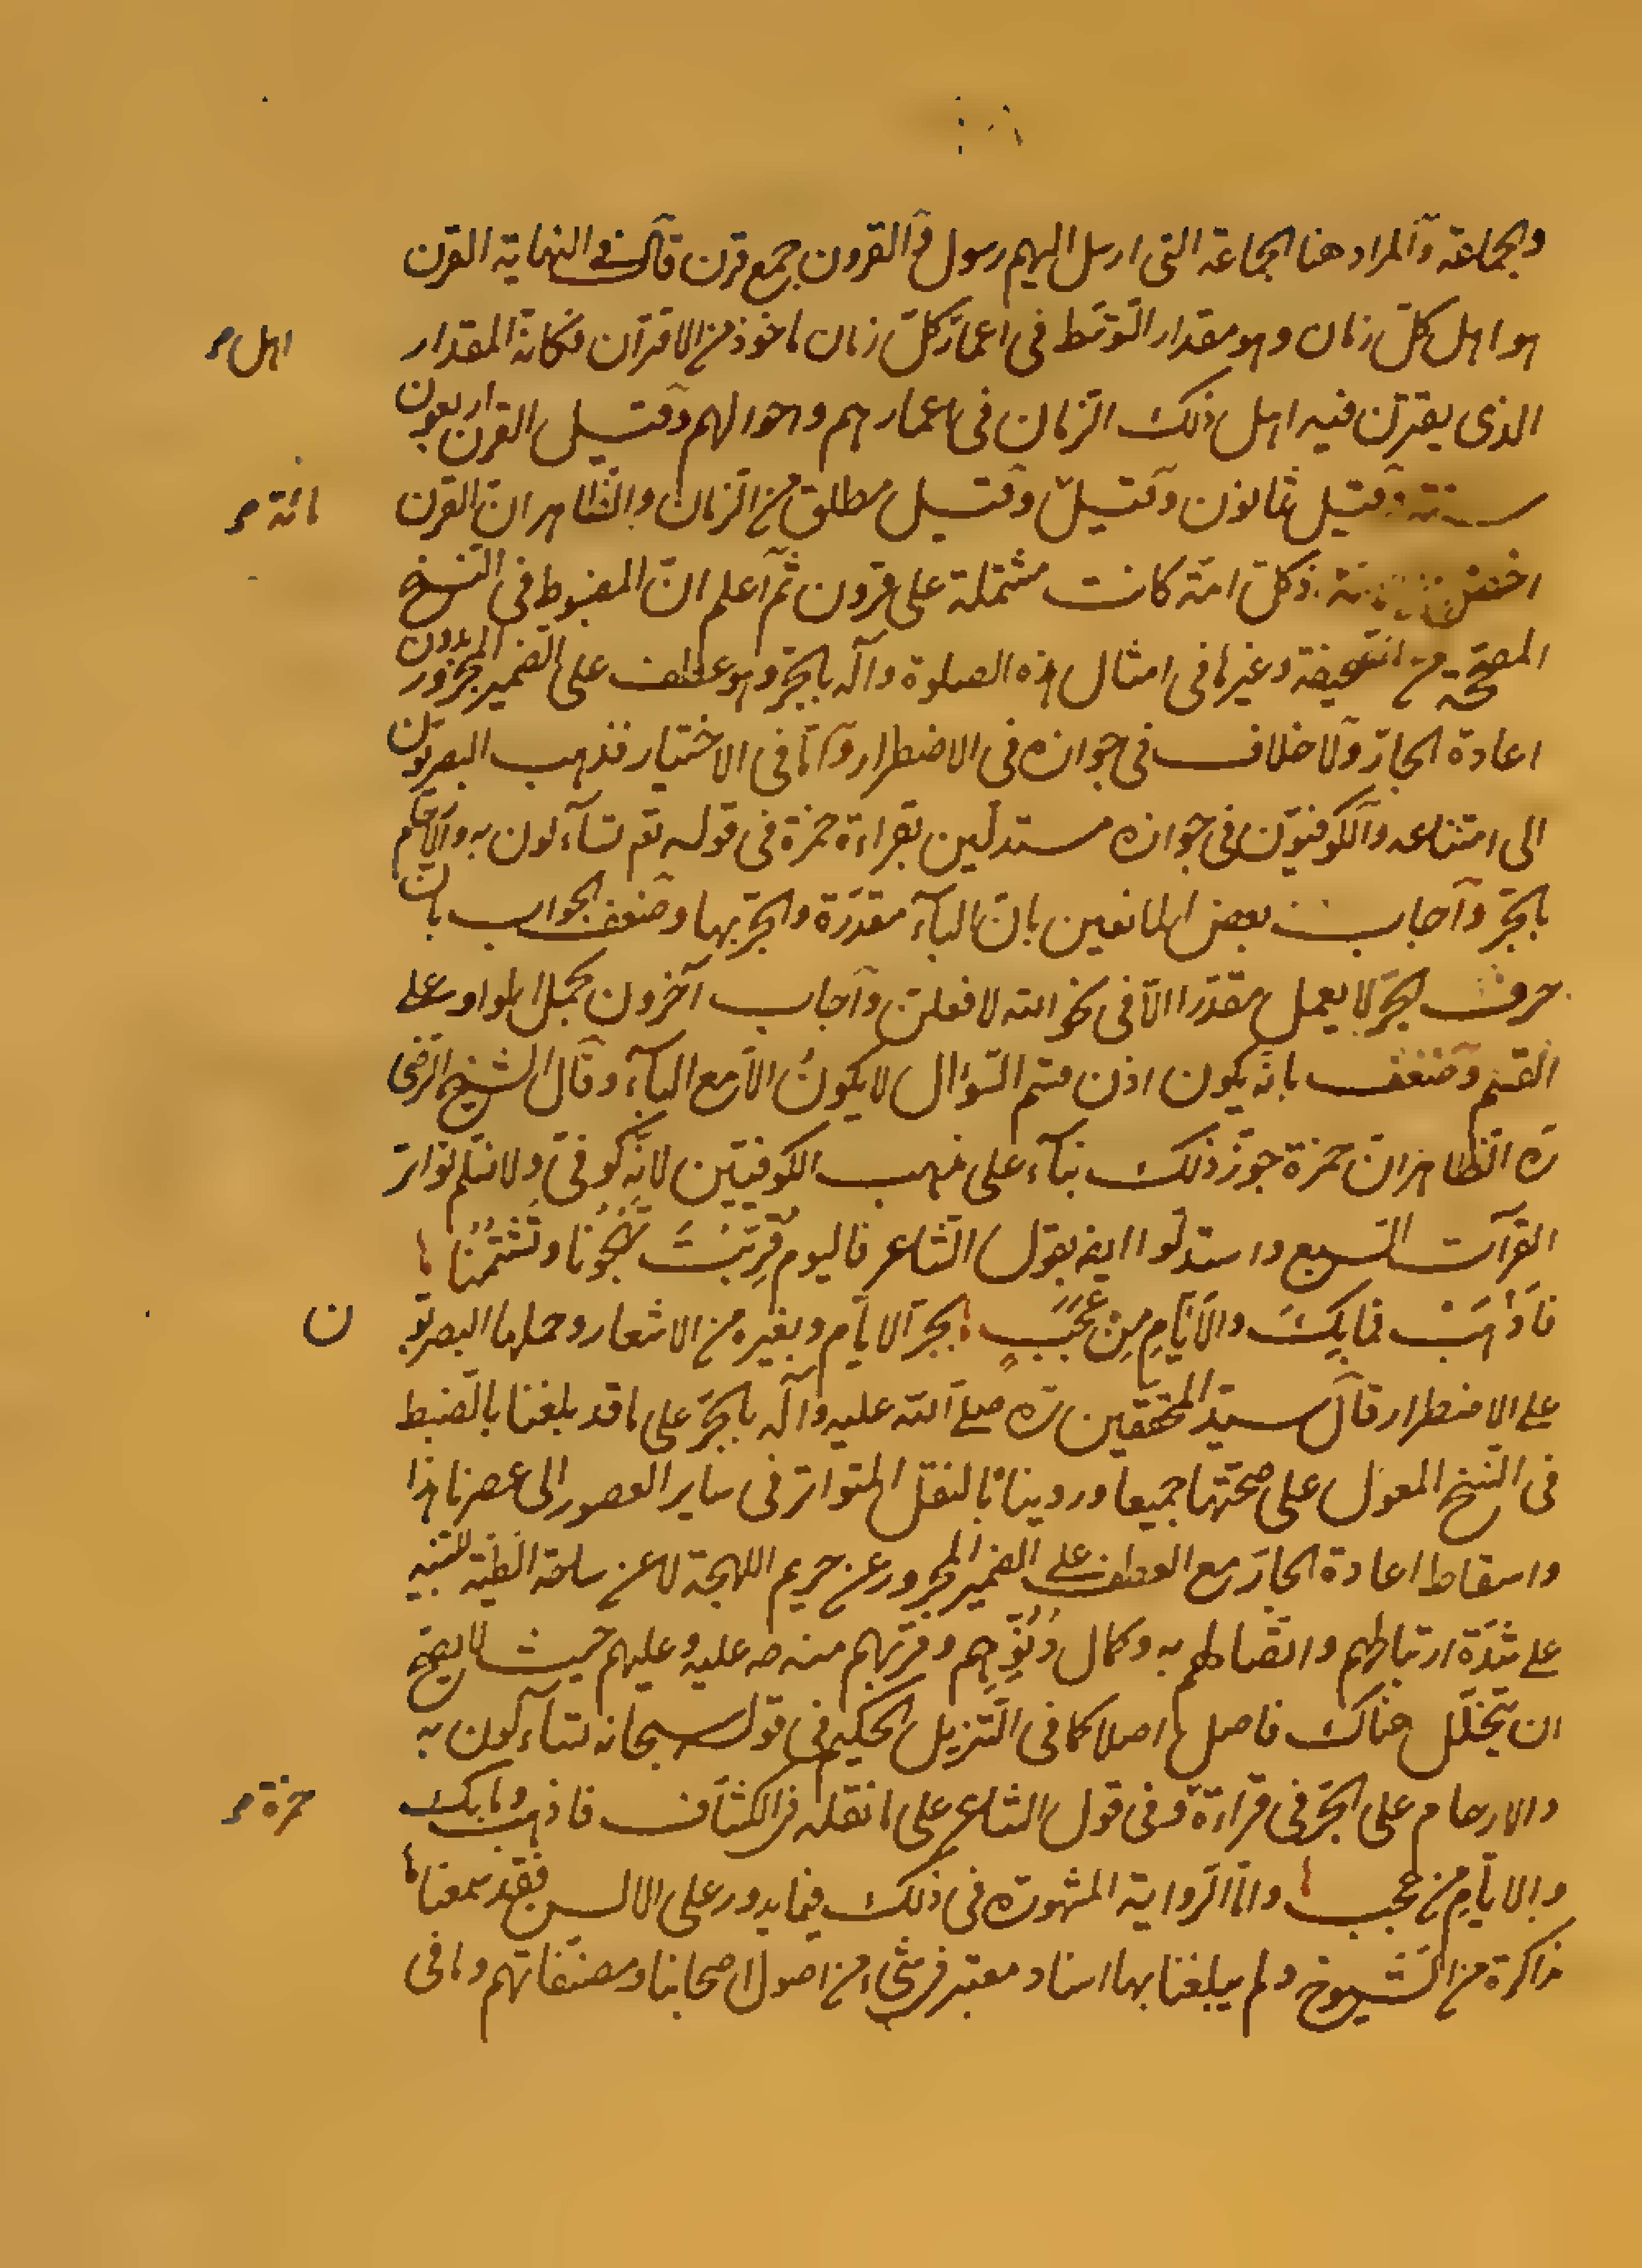 والجماعة والمراد هنا الجماعة التى ارسل اليهم رسول والقرون جمع قرن قال فى النهاية القرن
هو اهل كلّ زمان وهو مقدار التوسّط فى اعمار كلّ زمان ماخوذ من الاقتران فكانه المقدار
اهل
الذى يقترن فيه اهل ذلك الزمان فى اعمارهم واحوالهم وقيل القرن اربعون
سنة وقيل ثمانون وقيل وقيل مطلق من الزمان والظاهر انّ القرن
مائة
كلّ امّة كانت مشتملة على قرون ثمّ اعلم انّ المضبوط فى النسخ
المصحّحة من الصحيفة وغيرها فى امثال هذه الصلوة وآله بالجرّ وهو عطف على الضمير المجرور بدون
اعادة الجارّ ولا خلاف فى جوازه فى الاضطرار وامّا فى الاختيار فذهب البصريّون
الى امتناعه والكوفيّون فى جوازه مستدلّين بقراءة حمزة فى قوله تعم تسآءلون به والارحام
بالجرّ واجاب بعض المانعين بانّ البآء مقدّرة والجرّ بها وضعف الجواب بانّ
حرف الجرّ لا يعمل مقدّرا الّا فى نحو الله لافعلنّ واجاب آخرون بحمل الواو على
القسم وضعف بانّه يكون اذن قسم السّؤال لا يكونُ الّا مع البآء وقال الشيخ الرّضى
ره الظاهر انّ حمزة جوّز ذلك بنآء على مذهب الكوفيّين لانّه كوفىّ ولا نسلّم تواتر
القرآت السبع واستدلّوا ايضا بقول الشاعر فاليوم قرّبتَ تهجونا وتشتُمُنا
فاذْهَبْ فما بِكَ والايّامِ مِن عَجَبٍ بجرّ الايّام وبغيره من الاشعار وحملها البصريّو
ن
على الاضطرار قال سيّد المحقّقين ره صلّى الله عليه وآله بالجرّ على ما قد بلغنا بالضبط
فى النسخ المعوّل على صحّتها جميعا وروينا بالنقل المتواتر فى ساير العصور الى عصرنا هذا
واسقاط اعادة الجارّ مع العطف على الضمير المجرور عن حريم اللهجة لا عن ساحة الطيّة للتنبيه
على شدّة ارتباطهم واتّصالهم به وكمال دُنُوّهم وقربهم منه صه عليه وعليهم حيث لا يصحّ
ان يتخلّل هناك فاصل اصلا كما فى التّنزيل الحكيم فى قوله سبحانه تسآءلون به
والارحام على الجرّ فى قراءة وفى قول الشاعر على ما نقله فى الكشّاف فاذهب وما بك
حمزة
والايّامِ من عجب وامّا الرّواية المشهورة فى ذلك فيما يدور على الالسن فقد سمعناها
مذاكرة من الشّيوخ ولم يبلغنا بها اسناد معتبر فى شئ من اصول اصحابنا ومصنّفاتهم وما فى